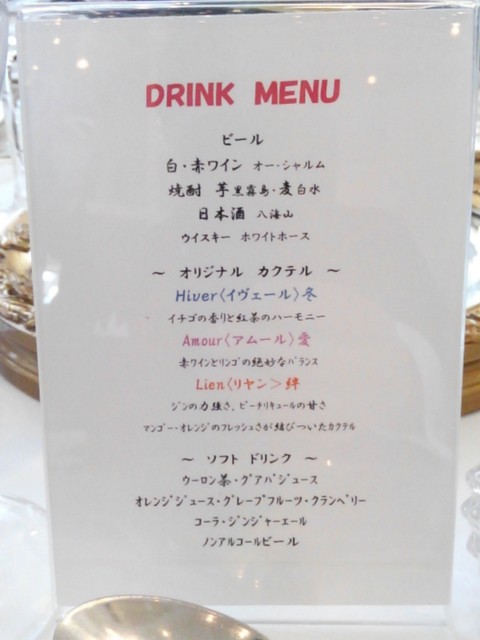 DRINK MENU
ビール
白・赤ワイン オー・シャルム
焼酎 芋黒霧島・麦白水
日本酒 八海山
ウイスキー ホワイトホース
～ オリジナル カクテル ～
Hiver〈イヴェール〉冬
イチゴの香りと紅茶のハーモニー
Amour〈アムール〉愛
赤ワインとリンゴの絶妙なバランス
Lien〈リヤン＞絆
ジンの力強さ、ピーチリキュールの甘さ
マンゴー・オレンジのフレッシュさが結びついたカクテル
～ ソフト ドリンク ～
ウーロン茶・グアバジュース
オレンジジュース・グレープフルーツ・クランベリー
コーラ・ジンジャーエール
ノンアルコールビール